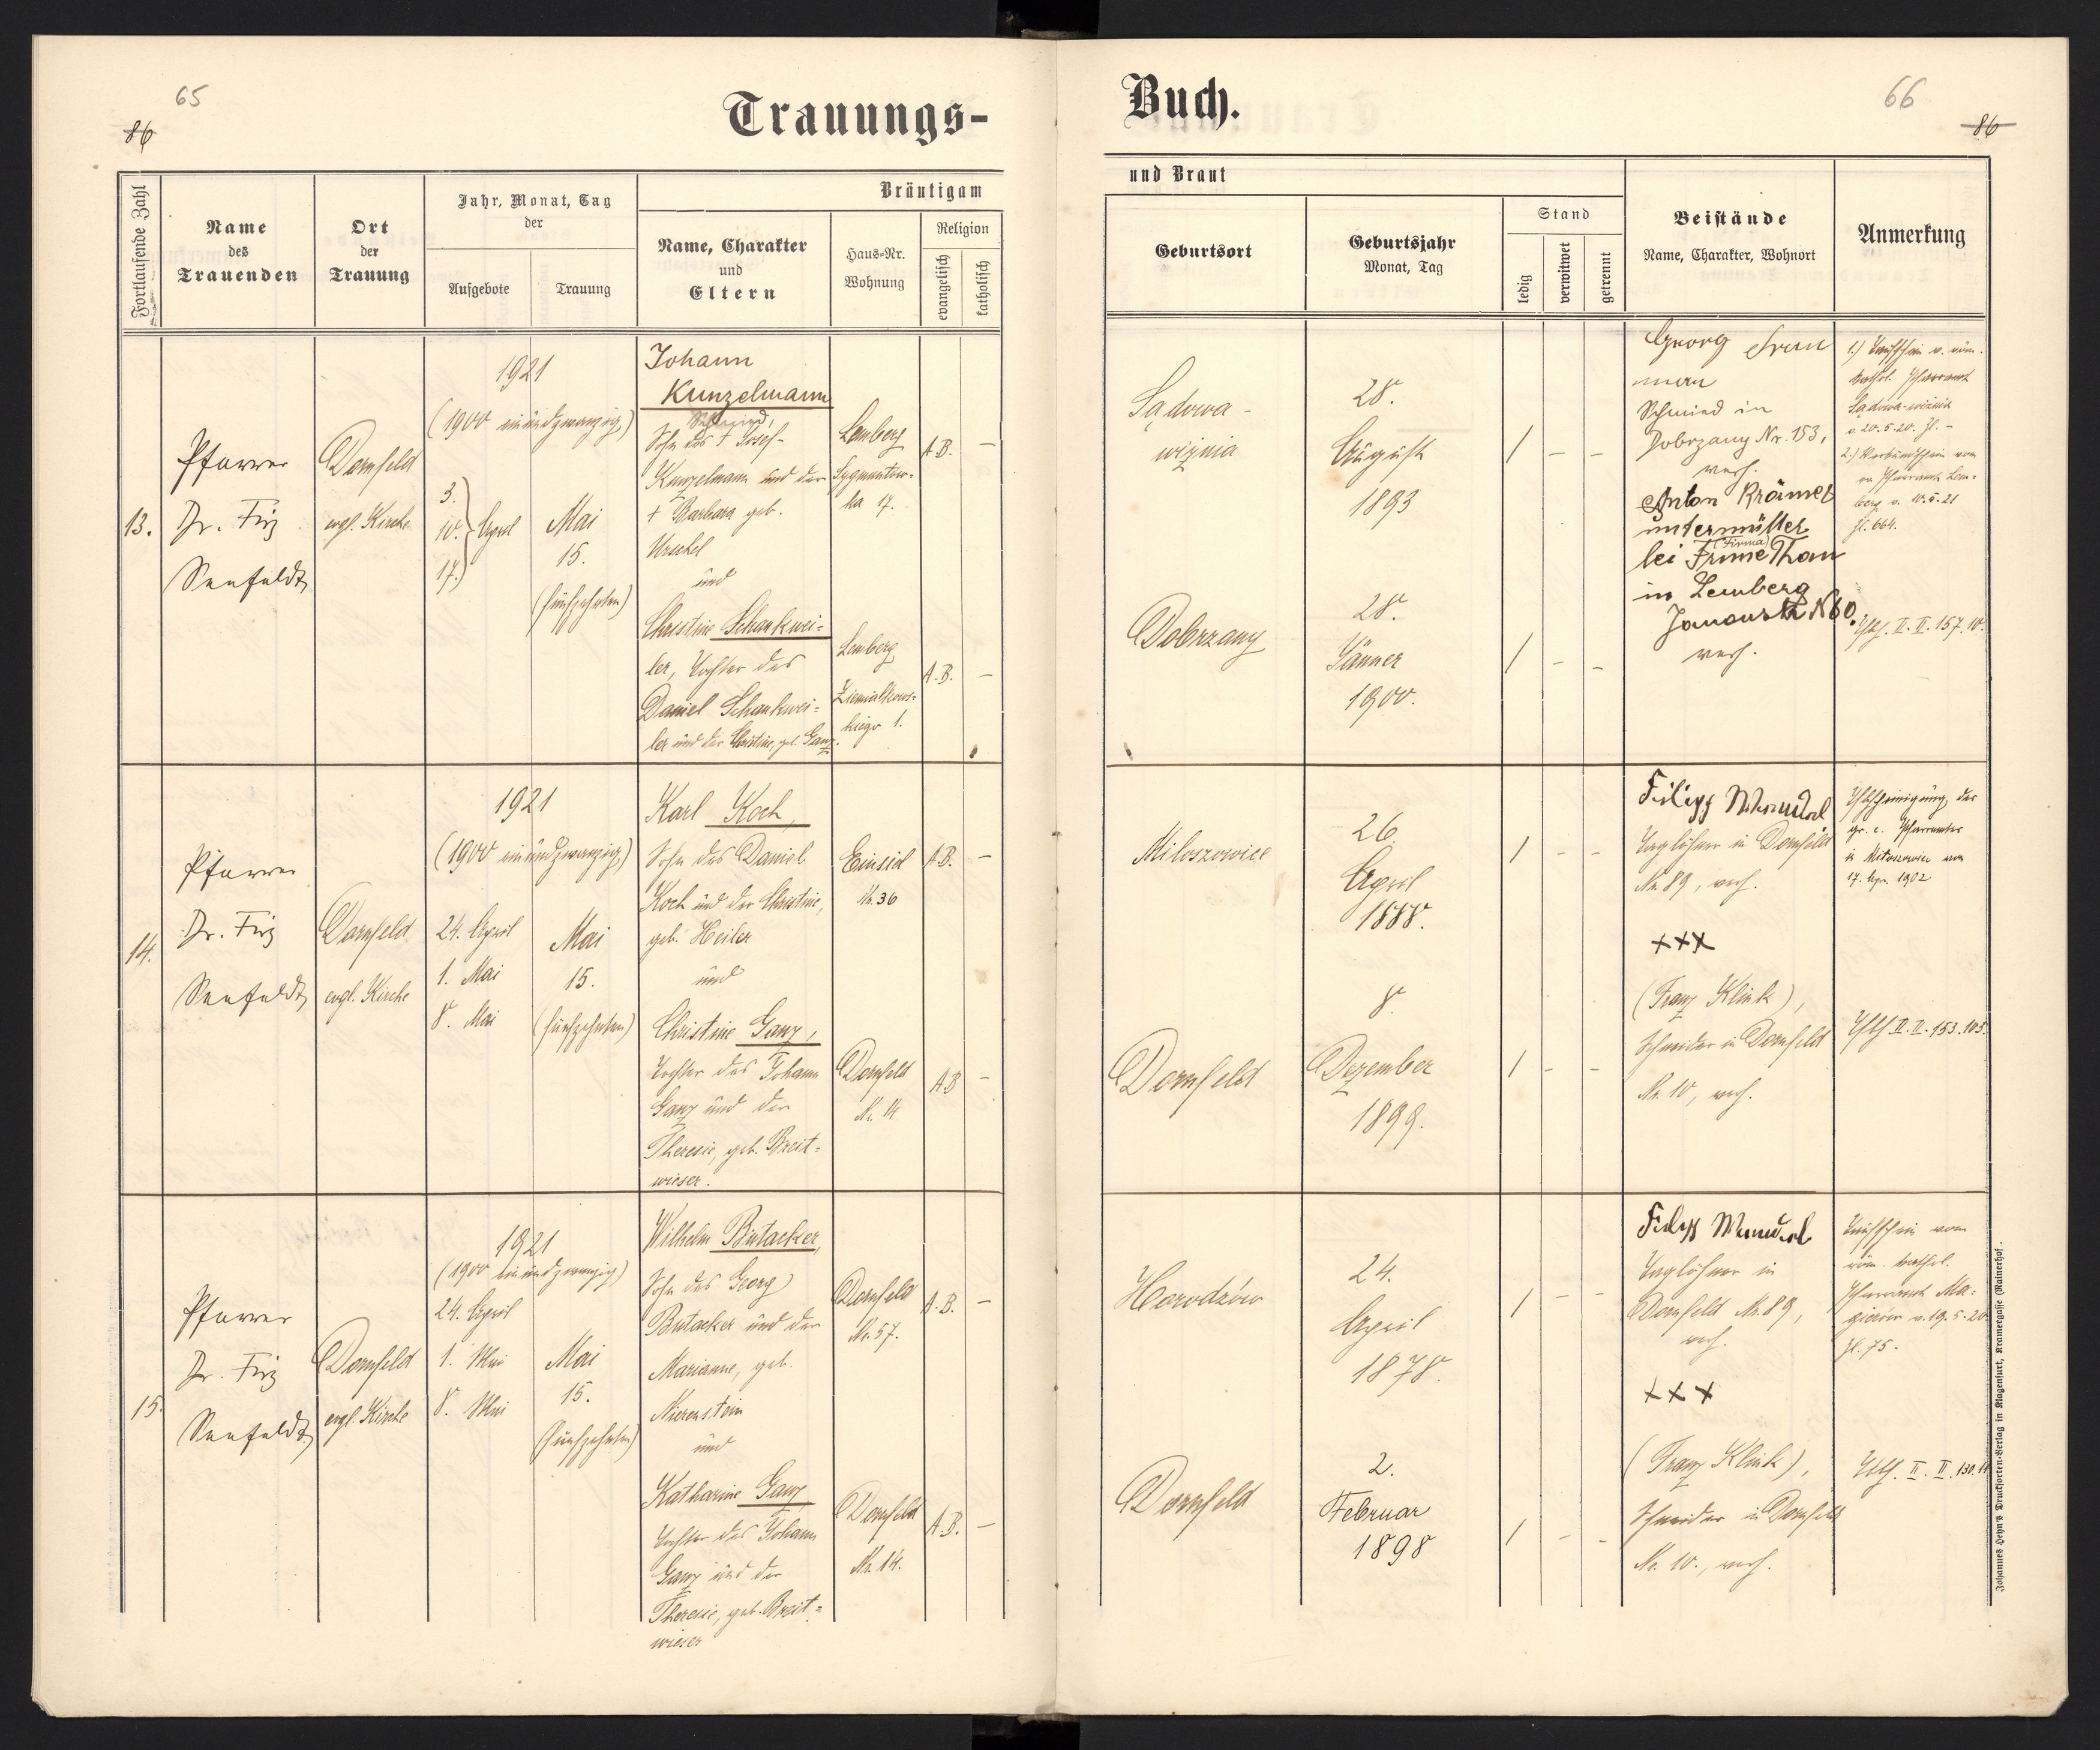 65
86
Trauungs-
Fortlaufende Zahl
Name
des
Trauenden
Ort
der
Trauung
Jahr, Monat, Tag
der
Aufgebote
Trauung
Bräutigam
Name, Charakter
und
Eltern
Haus-Nr.
Wohnung
Religion
evangelisch
katholisch
13.
Pfarrer
Dr. Fritz
Seefeldt
Dornfeld
evgl. Kirche
1921
(1900 einundzwanzig)
3.
10. April
17.
Mai
15.
(fünfzehnten)
Johann
Kunzelmann
Schmied,
Sohn des + Josef
Kunzelmann und der
+ Barbara geb.
Urschel
und
Christine Schankwei=
ler, Tochter des
Daniel Schankwei=
ler und der Christine, geb. Ganz.
Lemberg
17.
A.B. –
Lemberg
1.
A.B. –
14.
Pfarrer
Dr. Fritz
Seefeldt
Dornfeld
evgl. Kirche
1921
(1900 einundzwanzig)
24. April
1. Mai
8. Mai
Mai
15.
(fünfzehnten)
Karl Koch,
Sohn des Daniel
Koch und der Christine,
geb. Heiler
und
Christine Ganz,
Tochter des Johann
Ganz und der
Theresie, geb. Breit=
wieser.
Einsied
Nr. 36
A.B. –
Dornfeld
Nr. 14
A.B –
15.
Pfarrer
Dr. Fritz
Seefeldt
Dornfeld
evgl. Kirche
1921
(1900 einundzwanzig)
24. April
1. Mai
8. Mai
Mai
15.
(fünfzehnten)
Wilhelm Butacker,
Sohn des Georg
Butacker und der
Marianne, geb.
Nierenstein
und
Katharine Ganz
Tochter des Johann
Ganz und der
Theresie, geb. Breit=
wieser
Dornfeld
Nr. 57.
A.B. –
Dornfeld
Nr. 14.
A.B. –
Buch.
66
86
und Braut
Geburtsort
Geburtsjahr
Monat, Tag
Stand
ledig
verwitwet
getrennt
Beistände
Name, Charakter, Wohnort
Anmerkung
Sądowa-
wiznia
28.
August
1893
/ – –
Dobrzany
28.
Jänner
1900.
/ – –
Georg
Schmied in
Dobrzany Nr. 153,
verh.
Anton Krämer
untermüller
bei Frime Than
(Firma)
in Lemberg
verh.
1.) Taufschein v. röm.
kathol. Pfarramt
Sądowa-wiznia
v. 20.5.20.
berg v. 10.5.21
Zl. 664.
II. II. 157. 10.
Miloszowice
26.
April
1888.
/ – –
Dornfeld
8.
Dezember
1899.
/ – –
Filipp
Taglöhner in Dornfeld
Nr. 89, verh.
+++
(Franz Klink),
Schneider in Dornfeld
Nr. 10, verh.
gr. c. Pfarramtes
in Miloszowice vom
17. Apr. 1902
II. II. 153. 105.
Horodzów
24.
April
1878.
/ – –
Dornfeld
2.
Februar
1898
/ – –
Filipp
Taglöhner in
Dornfeld Nr. 89,
verh.
+++
(Franz Klink),
Schneider in Dornfeld
Nr. 10., verh.
Taufschein vom
röm. kathol.
Pfarramt Ma=
gierów v. 19.5.20
Zl. 75.
II. II. 130.
Johannes Heyn's Drucksorten-Verlag in Klagenfurt, Kramergasse (Rainerhof).